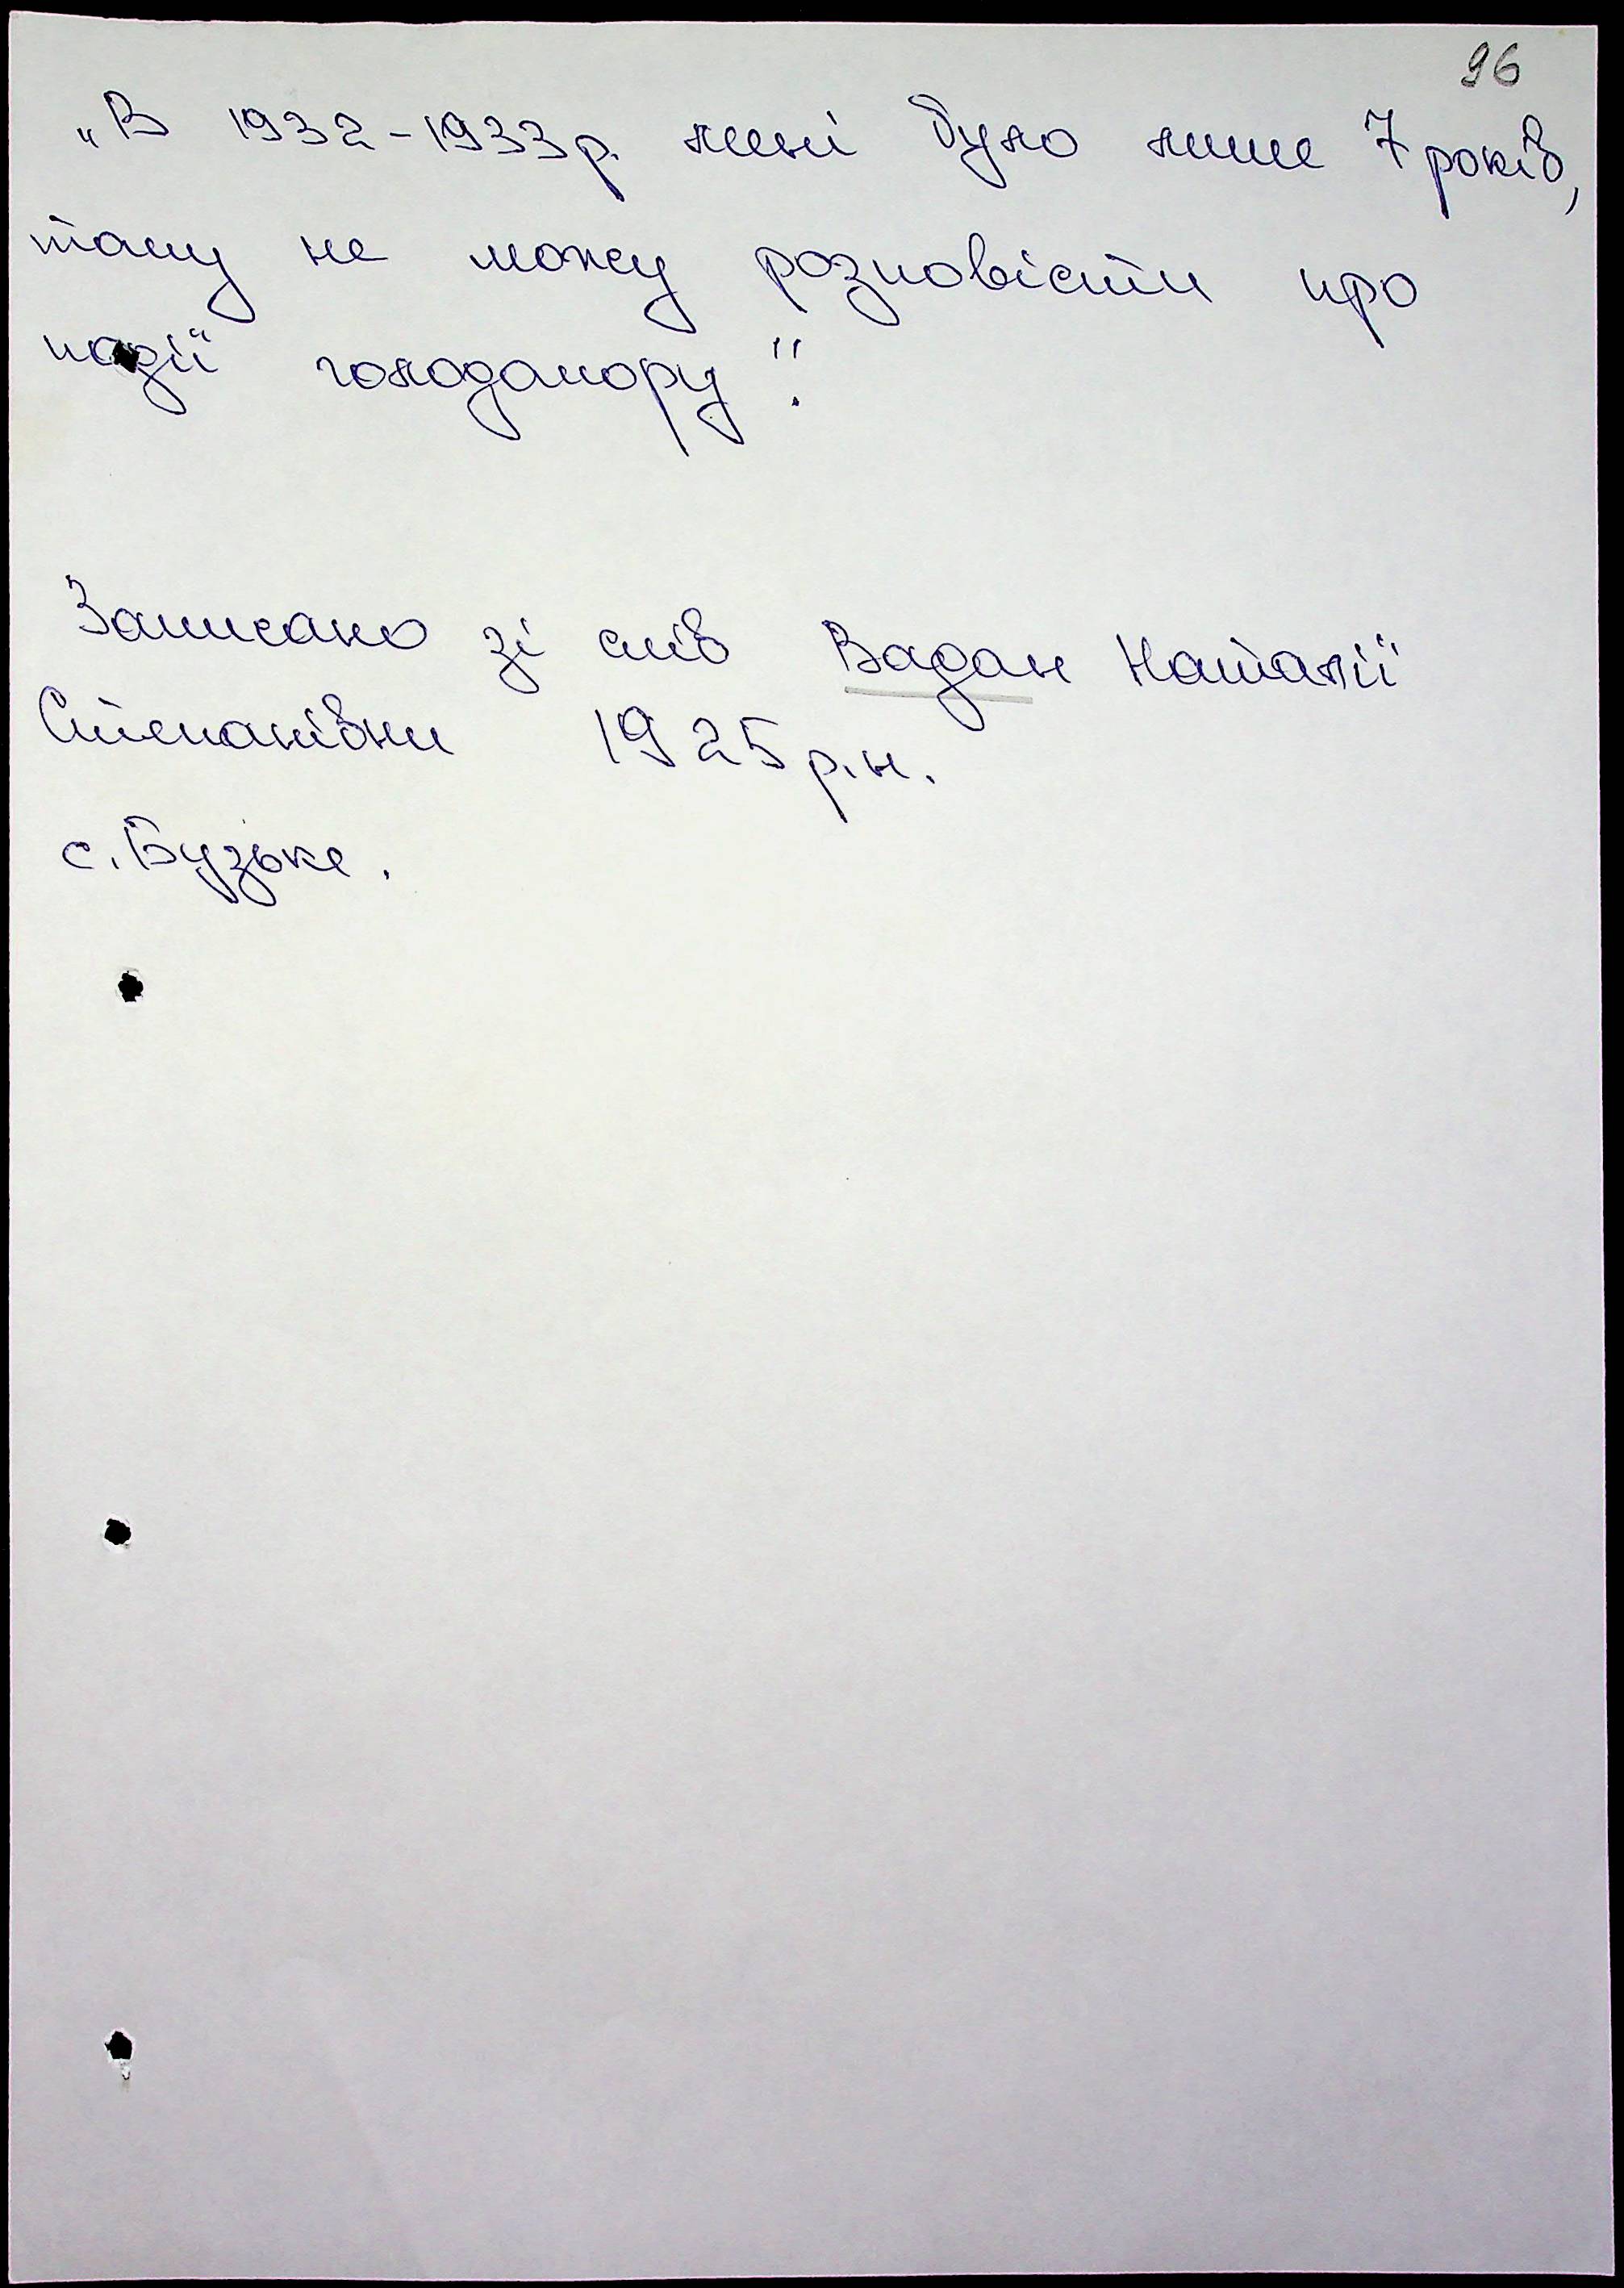 96
„В 1932-1933р. мені було лише 7 років,
тому не можу розповісти про
події голодомору".
Записано зі слів Вадан Наталії
Степанівни 1925 р.н.
с. Бузьке.